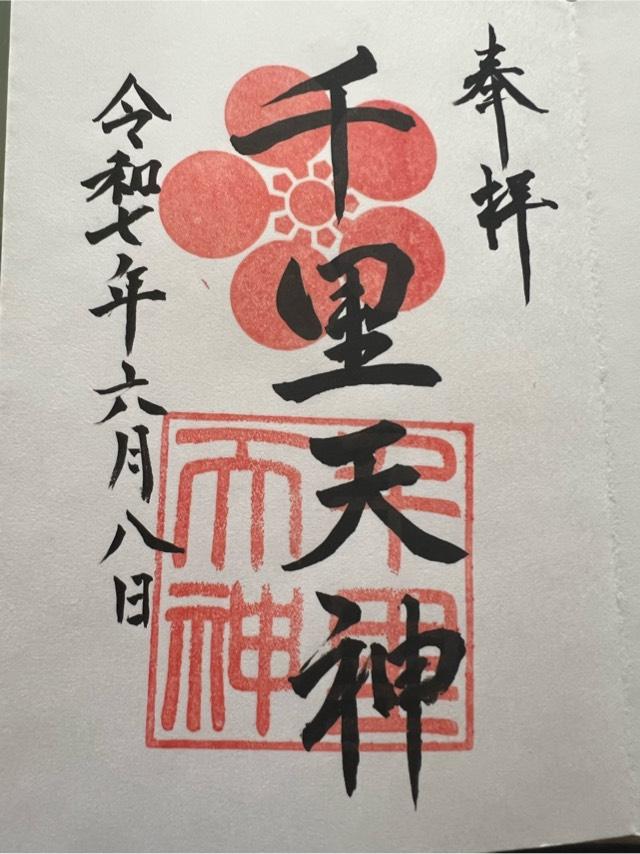 奉拝
千里天神
千里天神
令和七年六月八日